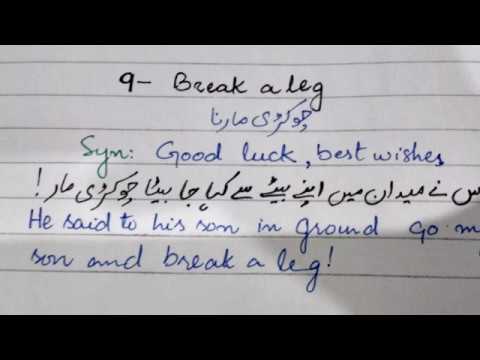 9- Break a leg
چوکڑی مارنا
Syn: Good luck, best wishes
س نے میدان میں اپنے بیٹے سے کہا جا بیٹا چوکڑی مار!
He said to his son in ground Go m
son and break a leg!